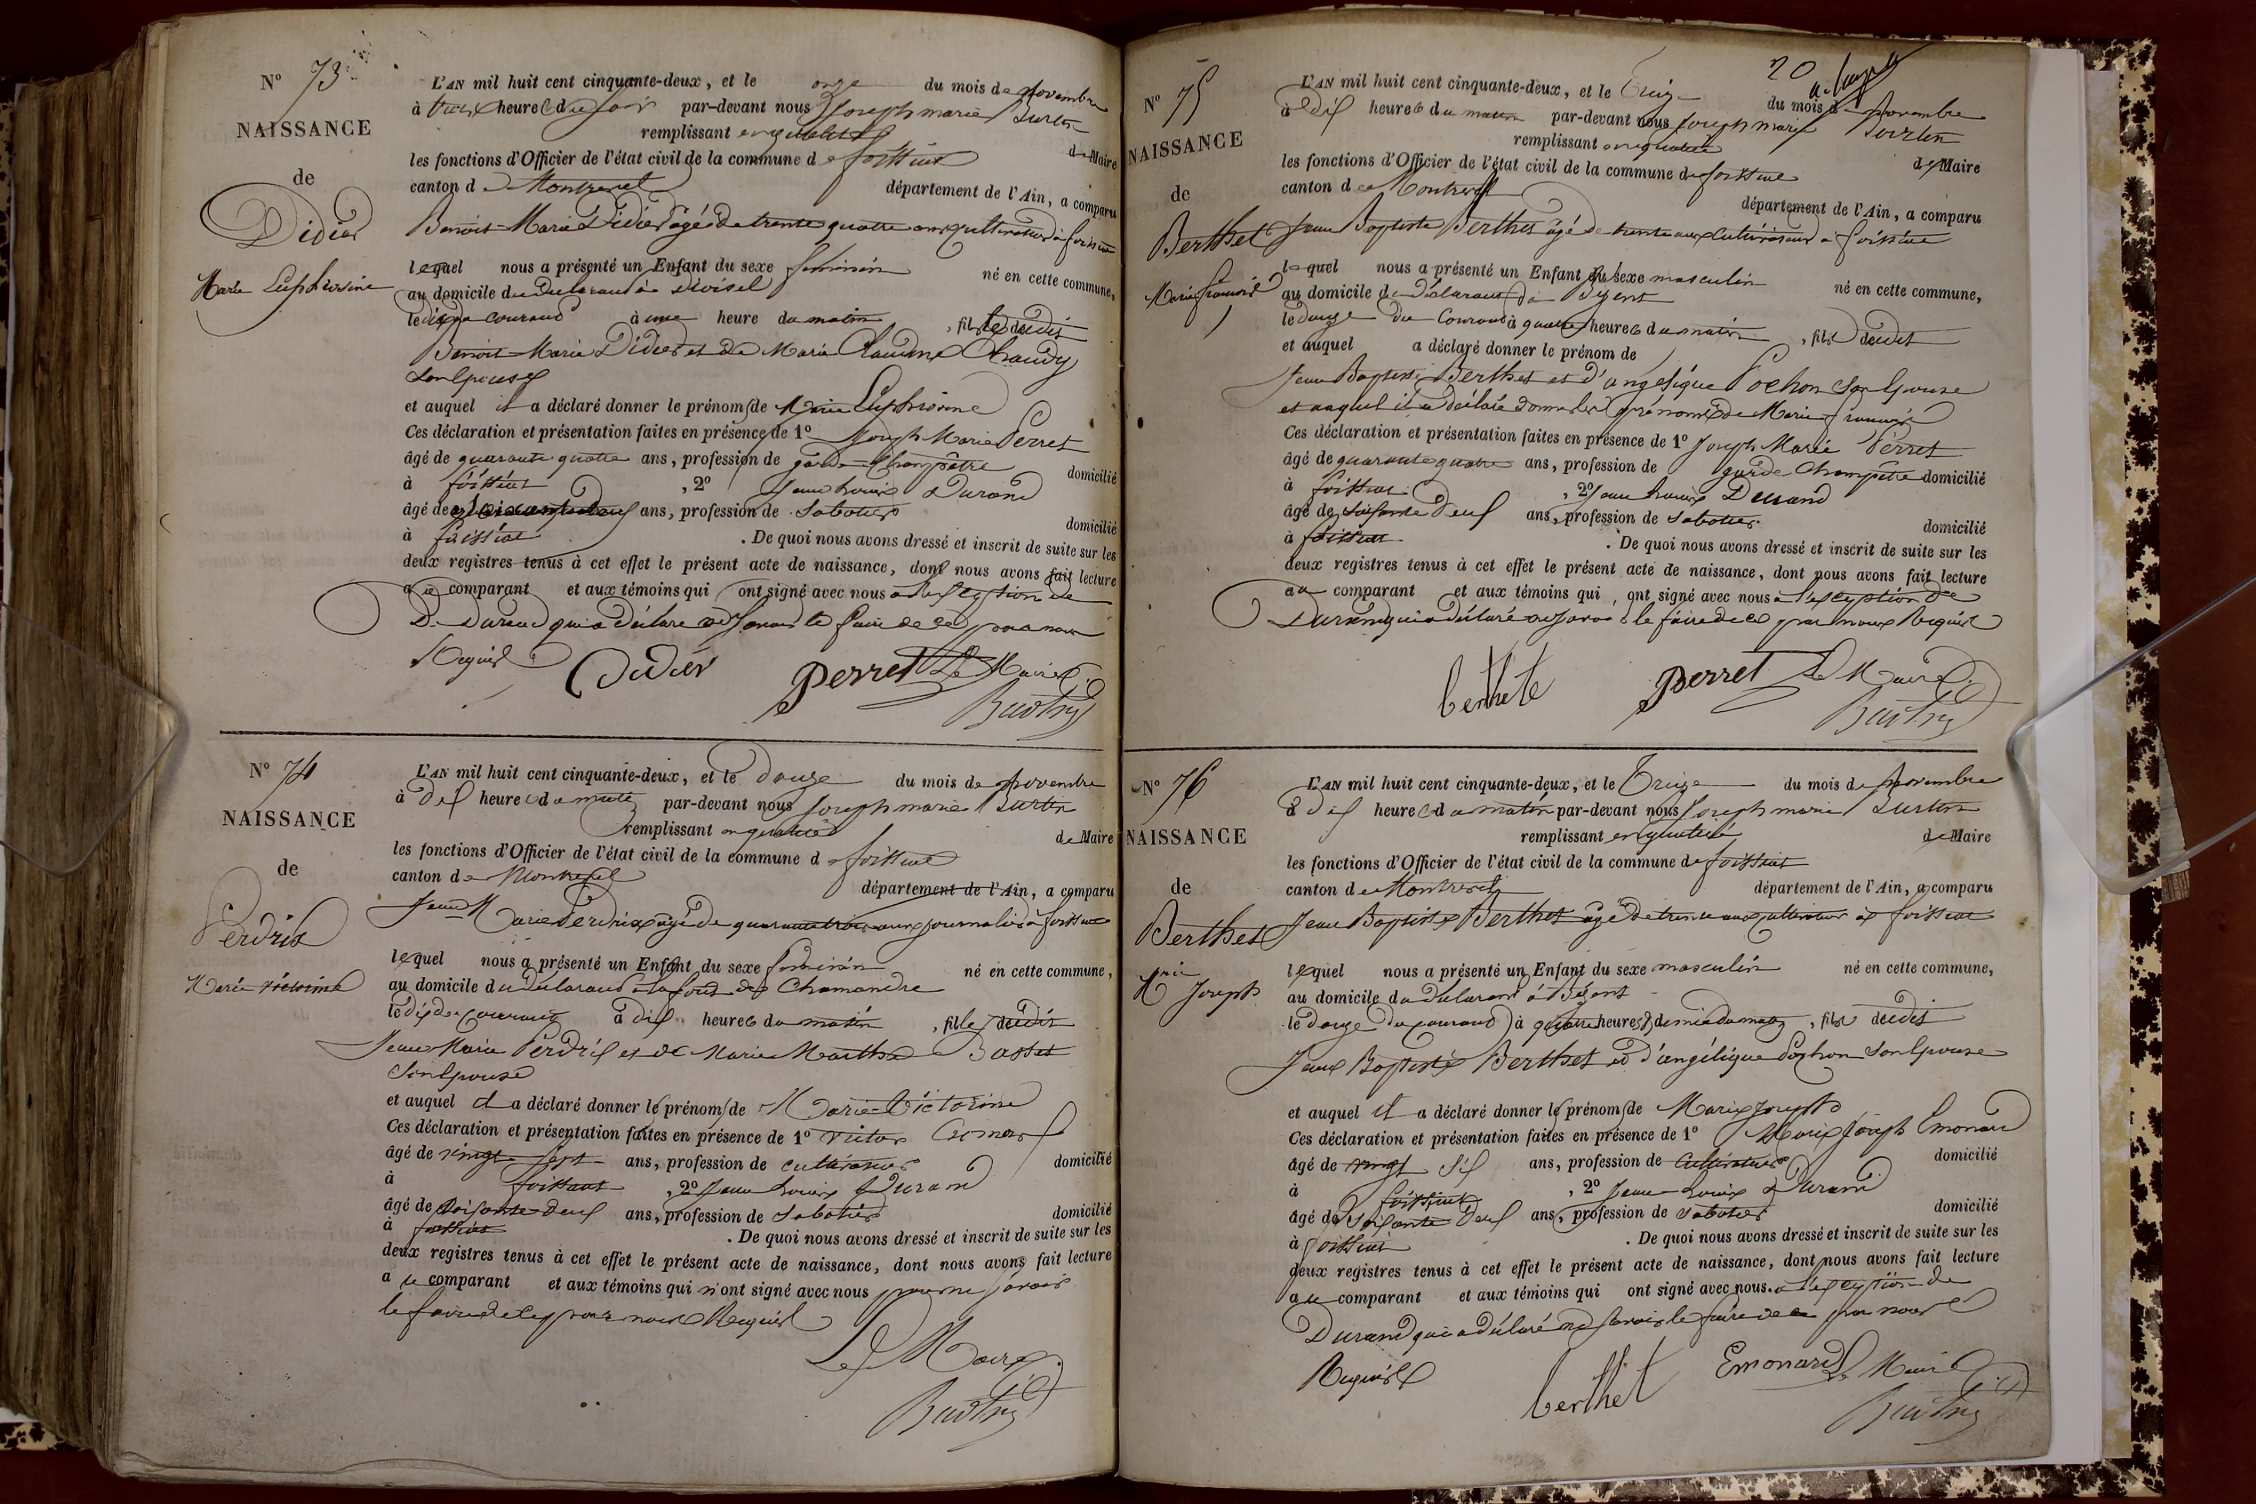 N° 73
NAISSANCE
de
Didier
Marie Euphrosine
L'AN mil huit cent cinquante-deux, et le onze du mois de novembre
à heures du soir par-devant nous Joseph marie Burtin
remplissant en qualité de Maire
les fonctions d'Officier de l'état civil de la commune de foissiat
canton de Montrevel département de l'Ain, a comparu
Benoit Marie Didier agé de trente quatre ans cultivateur à foissiat
lequel nous a présenté un Enfant du sexe féminin né en cette commune,
au domicile du déclarant à
le dix du courant à une heure du matin, fille dudit
Benoit Marie Didier et de Marie Claudine Chaudy
son épouse
et auquel il a déclaré donner le prénom de Marie Euphrosine
Ces déclaration et présentation faites en présence de 1° Joseph Marie Perret
âgé de quarante quatre ans, profession de garde champêtre domicilié
à foissiat, 2° Jean Louis Durand
âgé de soixante deux ans, profession de sabotier domicilié
à foissiat. De quoi nous avons dressé et inscrit de suite sur les
deux registres tenus à cet effet le présent acte de naissance, dont nous avons fait lecture
au comparant et aux témoins qui ont signé avec nous à l'exception de
Durand qui a déclaré ne savoir le faire de ce par nous
Requis Didier Perret Le Maire
Burtin
N° 74
NAISSANCE
de
Perdrix
Marie victorine
L'AN mil huit cent cinquante-deux, et le douze du mois de novembre
à dix heures du matin par-devant nous Joseph marie Burtin
remplissant en qualité de Maire
les fonctions d'Officier de l'état civil de la commune de foissiat
canton de Montrevel département de l'Ain, a comparu
Jean Marie Perdrix agé de quarante trois ans journalier à foissiat
lequel nous a présenté un Enfant du sexe féminin né en cette commune,
au domicile du déclarant à la font de Chamandre
le dix du courant à dix heures du matin, fille dudit
Jean Marie Perdrix et de Marie Marthe Basset
son épouse
et auquel il a déclaré donner le prénom de Marie Victorine
Ces déclaration et présentation faites en présence de 1° victor
âgé de vingt sept ans, profession de cultivateur domicilié
à foissiat, 2° Jean Louis Durand
âgé de soixante deux ans, profession de sabotier domicilié
à foissiat. De quoi nous avons dressé et inscrit de suite sur les
deux registres tenus à cet effet le présent acte de naissance, dont nous avons fait lecture
au comparant et aux témoins qui n'ont signé avec nous pour ne savoir
le faire de ce par nous Requis
Le Maire
Burtin
20
N° 75
NAISSANCE
de
Berthet
Marie françois
L'AN mil huit cent cinquante-deux, et le Treize du mois de novembre
à dix heures du matin par-devant nous Joseph marie Burtin
remplissant en qualité de Maire
les fonctions d'Officier de l'état civil de la commune de foissiat
canton de Montrevel département de l'Ain, a comparu
Jean Baptiste Berthet âgé de trente ans cultivateur à foissiat
lequel nous a présenté un Enfant du sexe masculin né en cette commune,
au domicile du déclarant à
le douze du courant à quatre heures du matin, fils dudit
et auquel a déclaré donner le prénom de
Jean Baptiste Berthet et d'angélique Pochon son épouse
et auquel il a déclaré donner les prénoms de Marie françois
Ces déclaration et présentation faites en présence de 1° Joseph Marie Perret
âgé de quarante quatre ans, profession de garde champêtre domicilié
à foissiat, 2° Jean Louis Durand
âgé de soixante deux ans, profession de sabotier domicilié
à foissiat. De quoi nous avons dressé et inscrit de suite sur les
deux registres tenus à cet effet le présent acte de naissance, dont nous avons fait lecture
au comparant et aux témoins qui ont signé avec nous à l'exception de
Durand qui a déclaré ne savoir le faire de ce par nous Requis
berthete Perret Le Maire
Burtin
N° 76
NAISSANCE
de
Berthet
Mrie Joseph
L'AN mil huit cent cinquante-deux, et le Treize du mois de novembre
à dix heures du matin par-devant nous Joseph marie Burtin
remplissant en qualité de Maire
les fonctions d'Officier de l'état civil de la commune de foissiat
canton de Montrevel département de l'Ain, a comparu
Jean Baptiste Berthet âgé de trente ans cultivateur à foissiat
lequel nous a présenté un Enfant du sexe masculin né en cette commune,
au domicile du déclarant à
le douze du courant à quatre heures & demie du matin, fils dudit
Jean Baptiste Berthet et d'angélique Pochon son épouse
et auquel il a déclaré donner le prénom de Marie Joseph
Ces déclaration et présentation faites en présence de 1° Marie Joseph Emonard
âgé de vingt six ans, profession de cultivateur domicilié
à foissiat, 2° Jean Louis Durand
âgé de soixante deux ans, profession de sabotier domicilié
à foissiat. De quoi nous avons dressé et inscrit de suite sur les
deux registres tenus à cet effet le présent acte de naissance, dont nous avons fait lecture
au comparant et aux témoins qui ont signé avec nous. à l'exception de
Durand qui a déclaré ne savoir le faire de ce par nous
Requis berthet Emonard Le Maire
Burtin